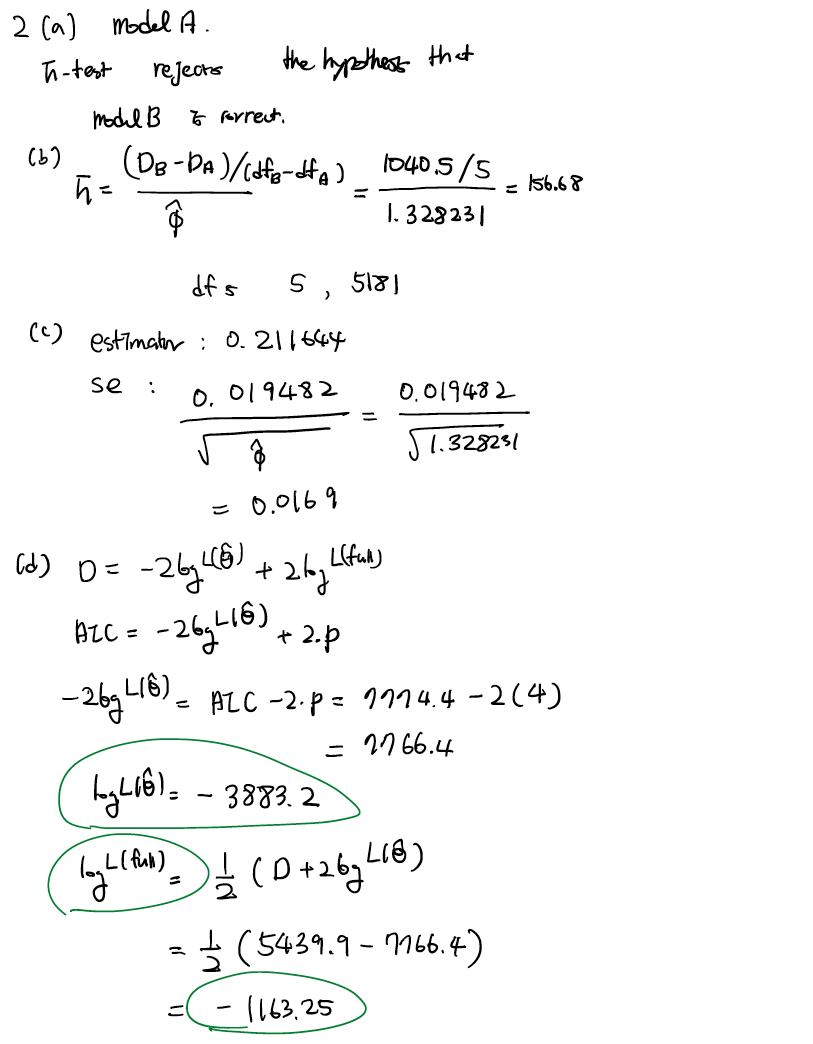 2 (a) model A.
h̄-test rejects the hypothesis that
model B is correct.
(b) h̄ = (D_B - D_A)/(df_B - df_A) / φ̂ = 1040.5/5 / 1.328231 = 156.68
df s 5 , 5181
(c) estimator : 0.211644
se : 0.019482 / √φ̂ = 0.019482 / √1.328231
= 0.0169
(d) D = -2log L(θ̂) + 2log L(full)
AIC = -2log L(θ̂) + 2·p
-2log L(θ̂) = AIC - 2·p = 7774.4 - 2(4)
= 7766.4
log L(θ̂) = - 3883.2
log L(full) = 1/2 (D + 2log L(θ̂))
= 1/2 (5439.9 - 7766.4)
= - 1163.25